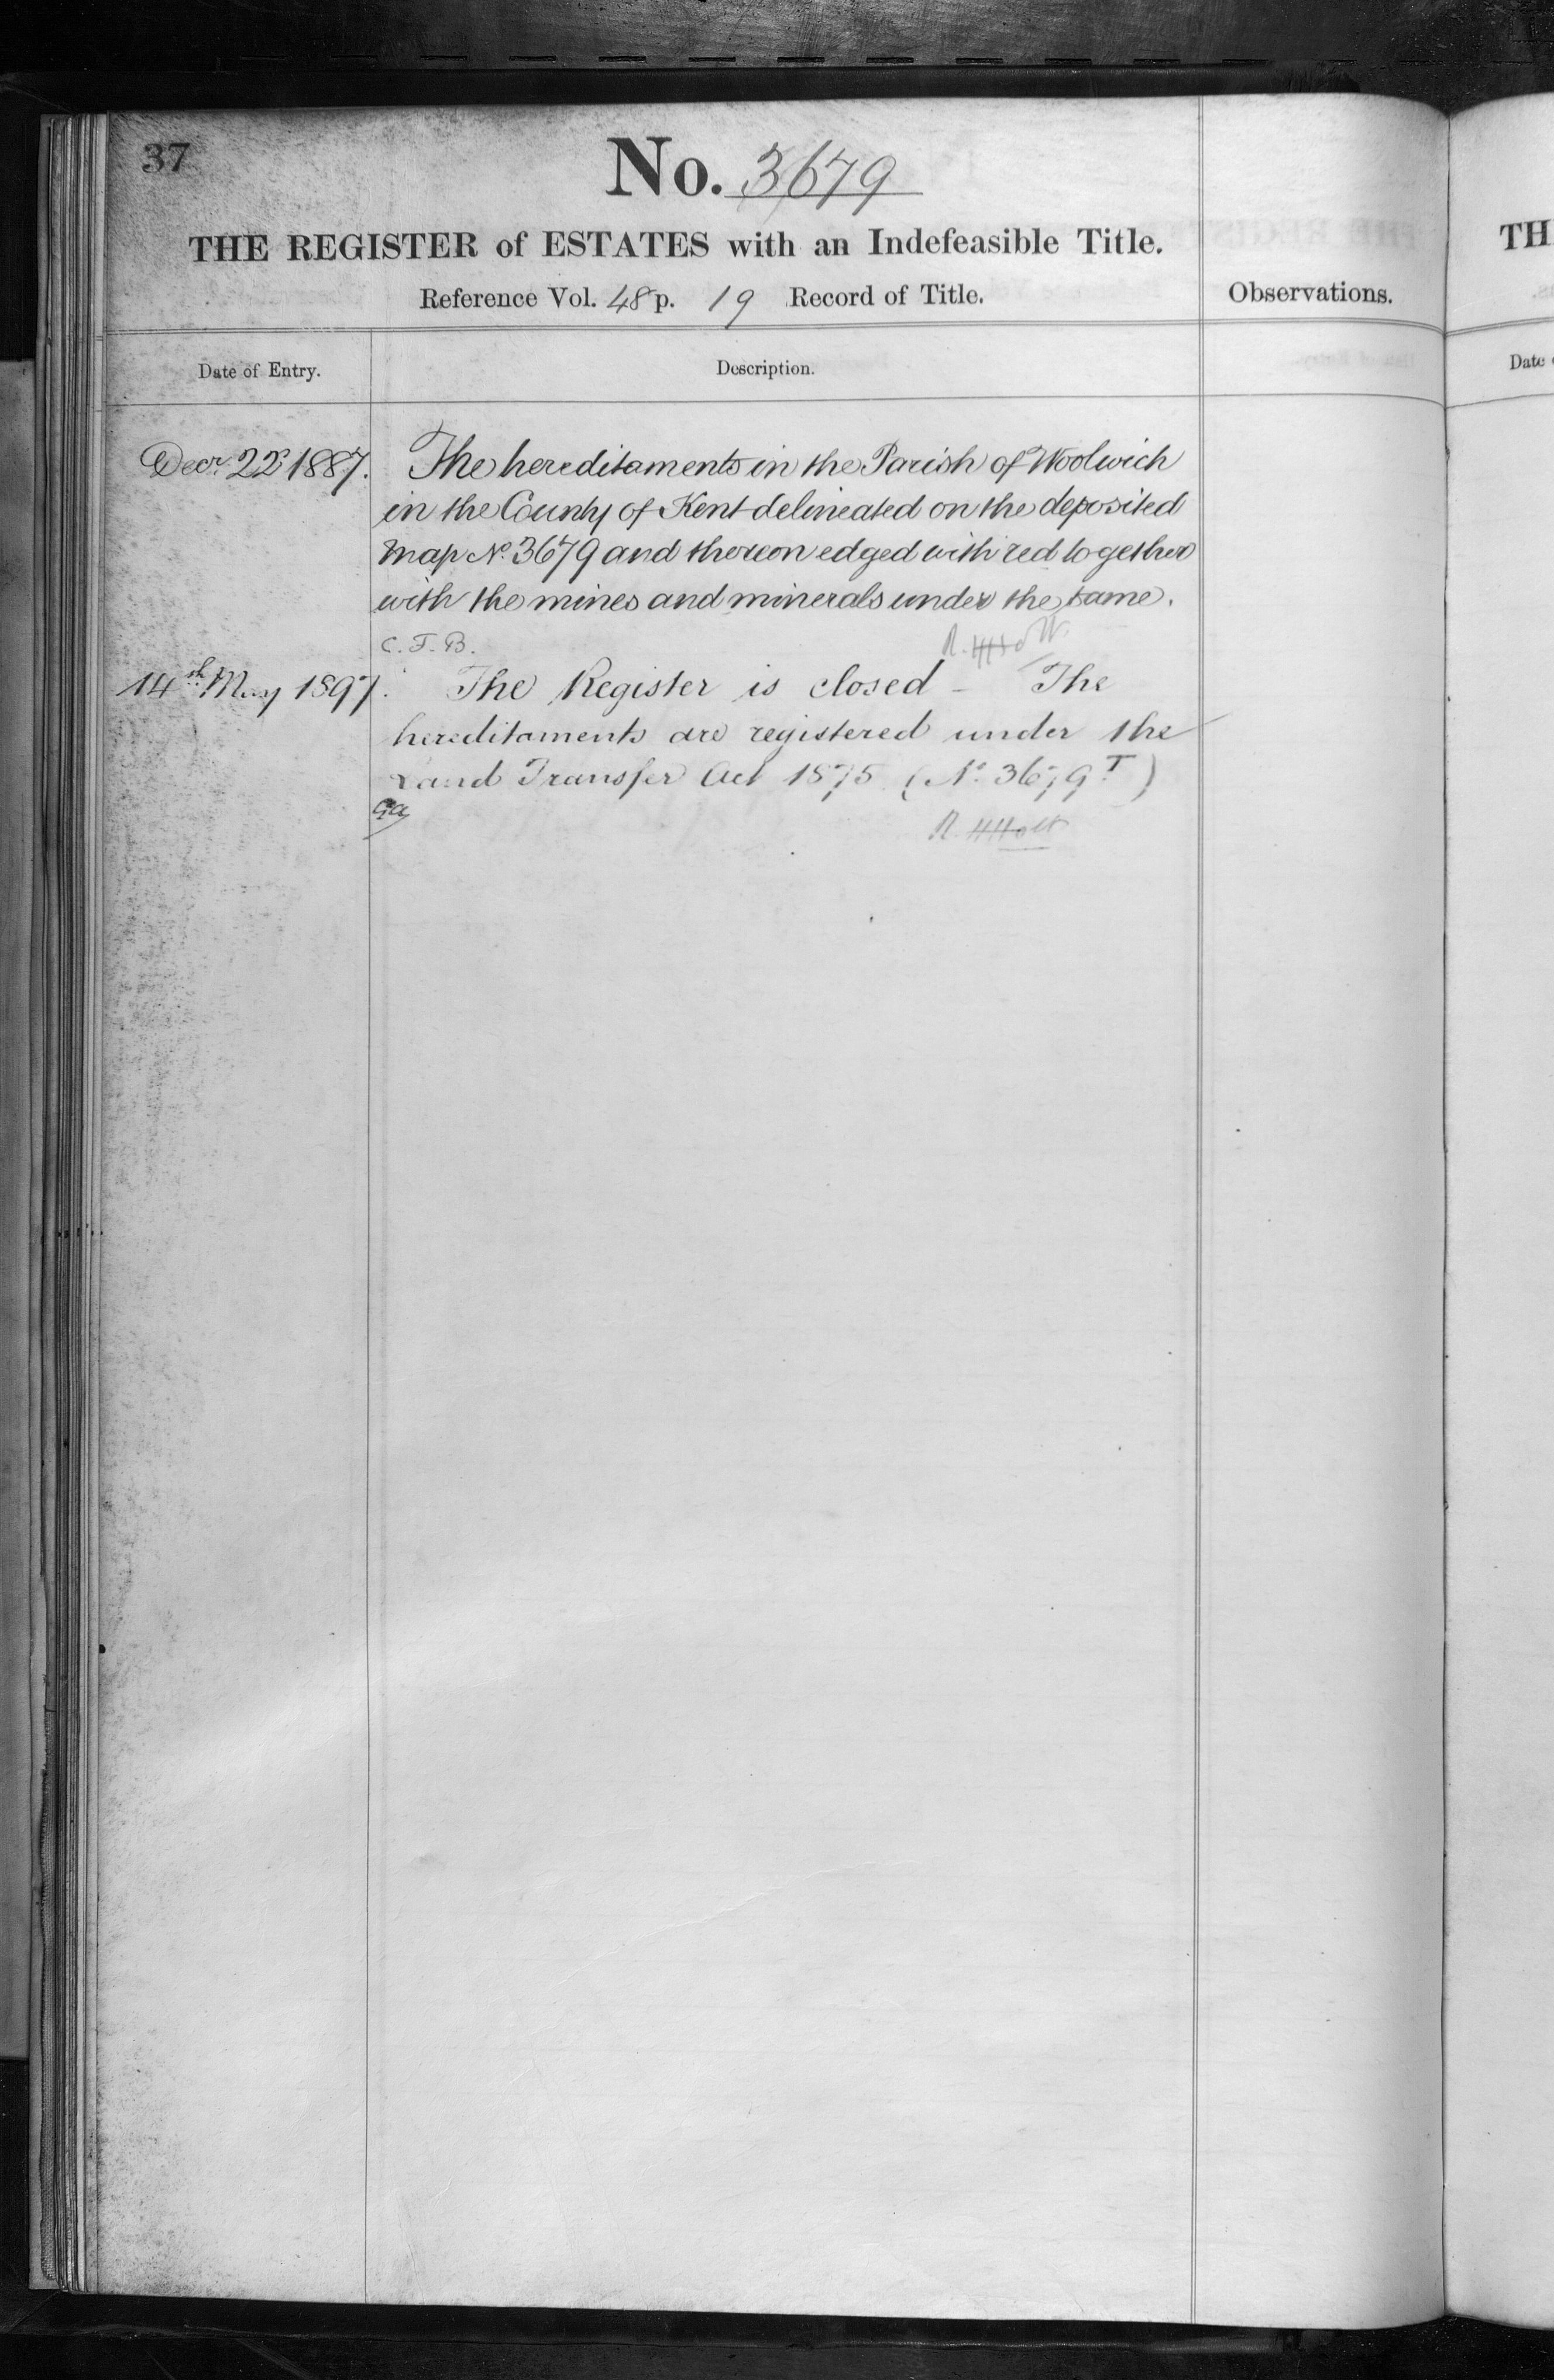 37
No. 3679
THE REGISTER of ESTATES with an Indefeasible Title.
Reference Vol. 48 p. 19 Record of Title.
Observations.
Date of Entry.
Description.
Decr. 22d 1887.
The hereditaments in the Parish of Woolwich
in the County of Kent delineated on the deposited
Map No. 3679 and thereon edged with red together
with the mines and minerals under the same.
C. F. B.
R. H Holt
14th May 1897.
The Register is closed – The
hereditaments are registered under the
Land Transfer Act 1875 (No. 3679 T)
R. H Holt
TH
Date